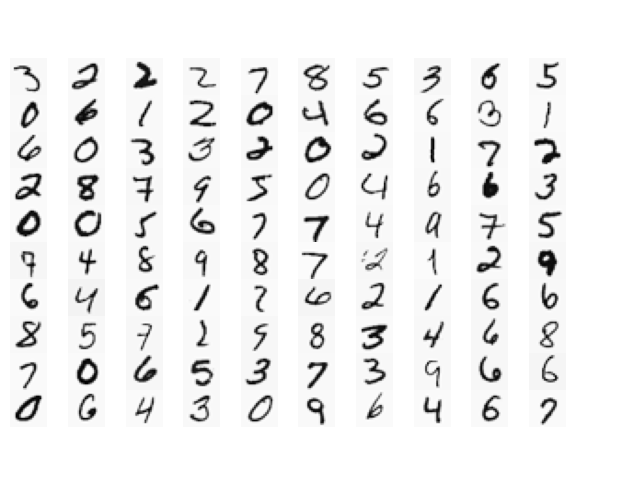 3 2 2 2 7 8 5 3 6 5
0 6 1 2 0 4 6 6 3 1
6 0 3 3 2 0 2 1 7 2
2 8 7 9 5 0 4 6 6 3
0 0 5 6 7 7 4 9 7 5
7 4 8 9 8 7 2 1 2 9
6 4 6 1 7 6 2 1 6 6
8 5 7 2 9 8 3 4 6 8
7 0 6 5 3 7 3 9 6 6
0 6 4 3 0 9 6 4 6 7